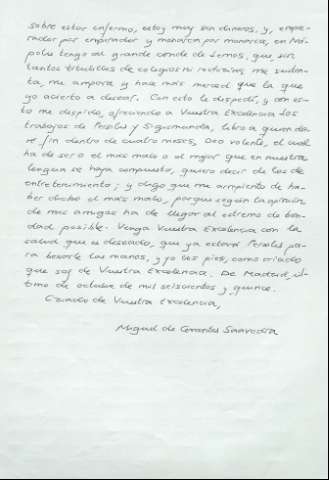 sobre estar enfermo, estoy muy sin dineros, y, empe-
rador por emperador y monarca por monarca, en Ná-
poles tengo al grande conde de Lemos, que, sin
tantos titulillos de colegios ni rectorías, me susten-
ta, me ampara y hace más merced que la que
yo acierto a desear. Con esto le despedí, y con es-
to me despido, ofreciendo a Vuestra Excelencia los
trabajos de Persiles y Sigismunda, libro a quien da-
ré fin dentro de cuatro meses, Deo volente, el cual
ha de ser o el más malo o el mejor que en nuestra
lengua se haya compuesto, quiero decir de los de
entretenimiento; y digo que me arrepiento de ha-
ber dicho el más malo, porque según la opinión
de mis amigos ha de llegar al estremo de bon-
dad posible. Venga Vuestra Excelencia con la
salud que es deseado, que ya estará Persiles pa-
ra besarle las manos, y yo los pies, como criado
que soy de Vuestra Excelencia. De Madrid, úl-
timo de octubre de mil seiscientos y quince.
Criado de Vuestra Excelencia,
Miguel de Cervantes Saavedra